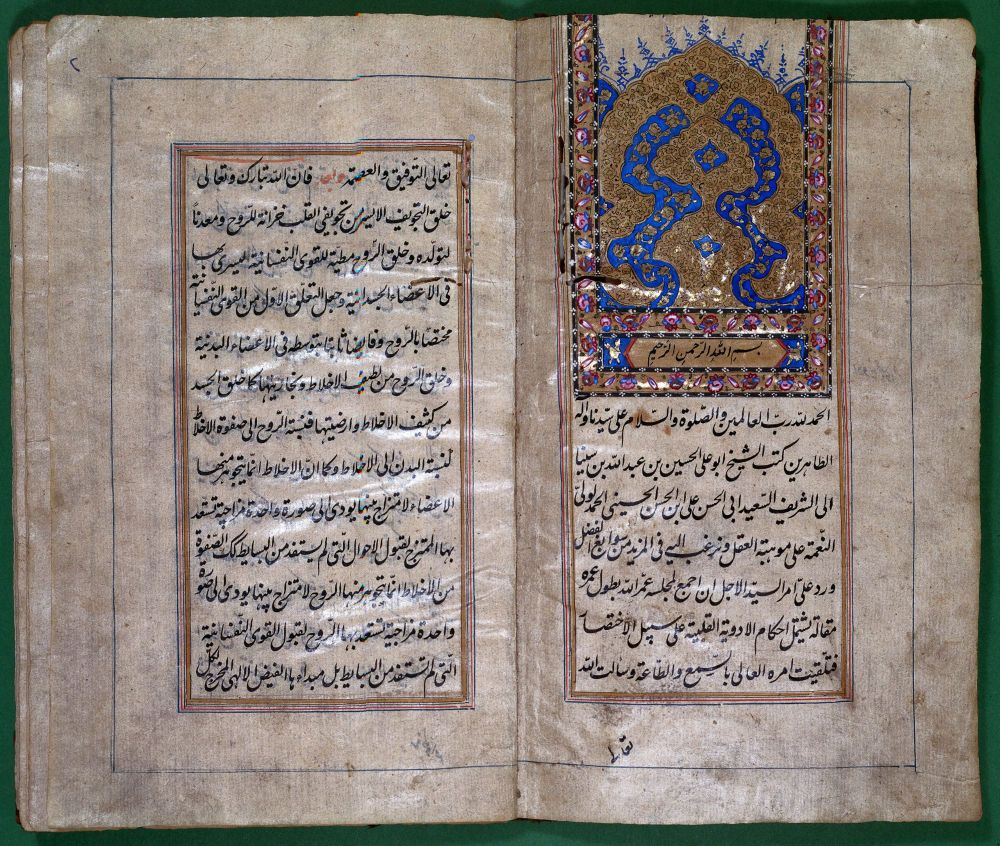 بسم الله الرحمن الرحيم
الحمد لله رب العالمين والصلوة والسلام على سيدنا وآله
الطاهرين كتب الشيخ ابو على الحسين بن عبد الله بن سينا
الى الشريف السعيد ابى الحسن على ابن الحسن الحسينى الحمد لولى
النعمة على موهبة العقل ونرغب اليه فى المزيد من سوابغ الفضل
ورد على امر السيد الاجل ان اجمع لمجلسه عمر الله بطول عمره
مقالة تشتمل احكام الادوية القلبية على سبيل الاختصار
فتلقيت امره العالى بالسمع والطاعة وسالت الله
تعالى
تعالى التوفيق والعصمة وبعد فان الله تبارك وتعالى
خلق التجويف الايسر من تجويفى القلب خزانة للروح ومعدنا
لتولده وخلق الروح مطية للقوى النفسانية ليسرى بها
فى الاعضاء الجسدانية وجعل التعلق الاول من القوى النفسانية
مختصا بالروح وفايضا ثانيا بتوسطه فى الاعضاء البدنية
وخلق الروح من لطيف الاخلاط وبخاريتها كما خلق الجسد
من كثيف الاخلاط وارضيتها فنسبة الروح الى صفوة الاخلاط
كنسبة البدن الى الاخلاط وكما ان الاخلاط انما يتجوهر منها
الاعضاء لامتزاج بينها يودى الى صورة واحدة مزاجية تستعد
بها الممتزج لقبول الاحوال التى لم يستفد من البسايط كك الصفوة
من الاخلاط انما يتجوهر منها الروح لامتزاج بينها يودى الى صورة
واحدة مزاجية تستعد بها الروح لقبول القوى النفسانية
التى لم تستفد من البسايط بل مبداء ها الفيض الالهى المخرج لكل
٢